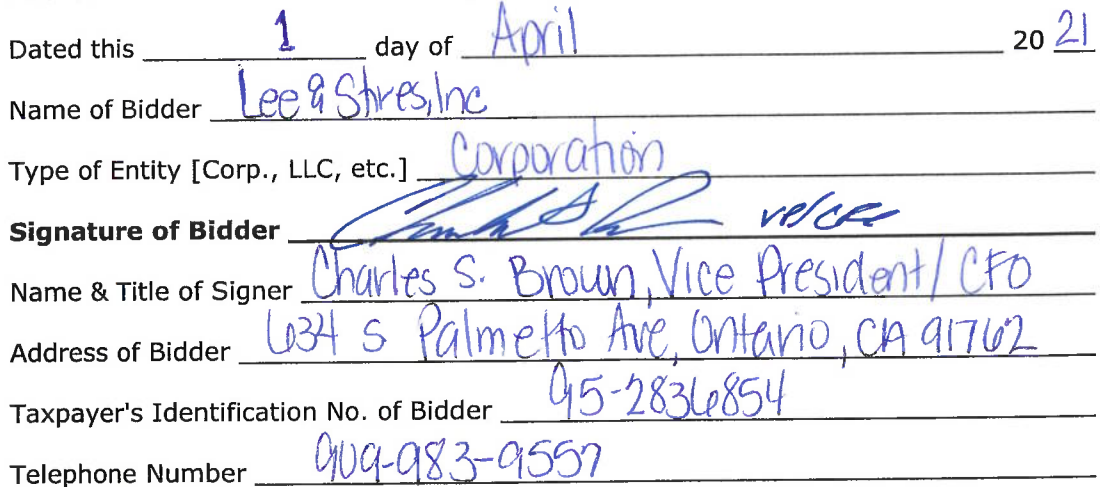 Dated this 1 day of April 20 21
Name of Bidder Lee & Stires, Inc
Type of Entity [Corp., LLC, etc.] Corporation
Signature of Bidder
Name & Title of Signer Charles S. Brown, Vice President/CFO
Address of Bidder 634 S Palmetto Ave, Ontario, CA 91762
Taxpayer's Identification No. of Bidder 95-2836854
Telephone Number 909-983-9557